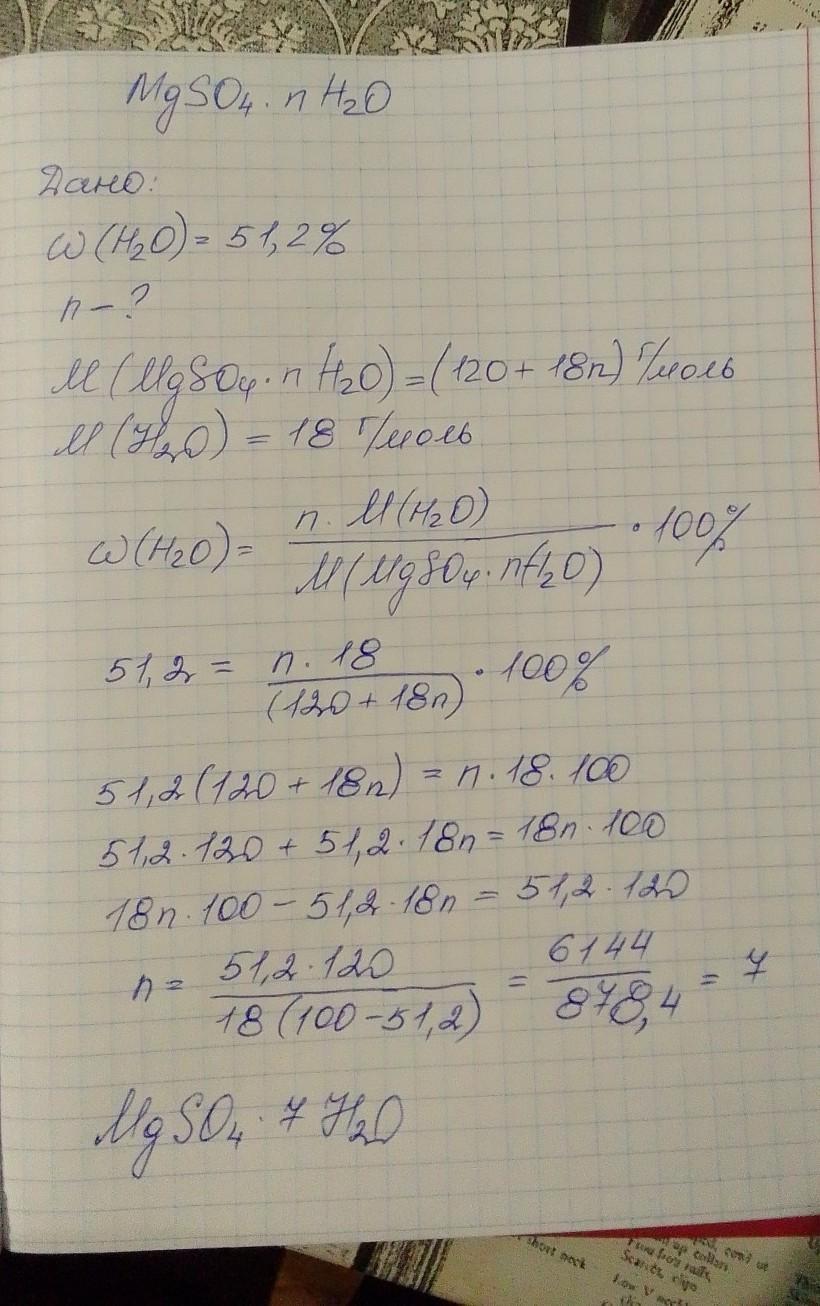 MgSO₄ · n H₂O
Дано:
ω(H₂O) = 51,2%
n – ?
M(MgSO₄ · n H₂O) = (120 + 18n) г/моль
M(H₂O) = 18 г/моль
ω(H₂O) = n · M(H₂O) / M(MgSO₄ · nH₂O) · 100%
51,2 = n · 18 / (120 + 18n) · 100%
51,2(120 + 18n) = n · 18 · 100
51,2 · 120 + 51,2 · 18n = 18n · 100
18n · 100 – 51,2 · 18n = 51,2 · 120
n = 51,2 · 120 / 18(100 – 51,2) = 6144 / 878,4 = 7
MgSO₄ · 7 H₂O
short neck
Low V neck